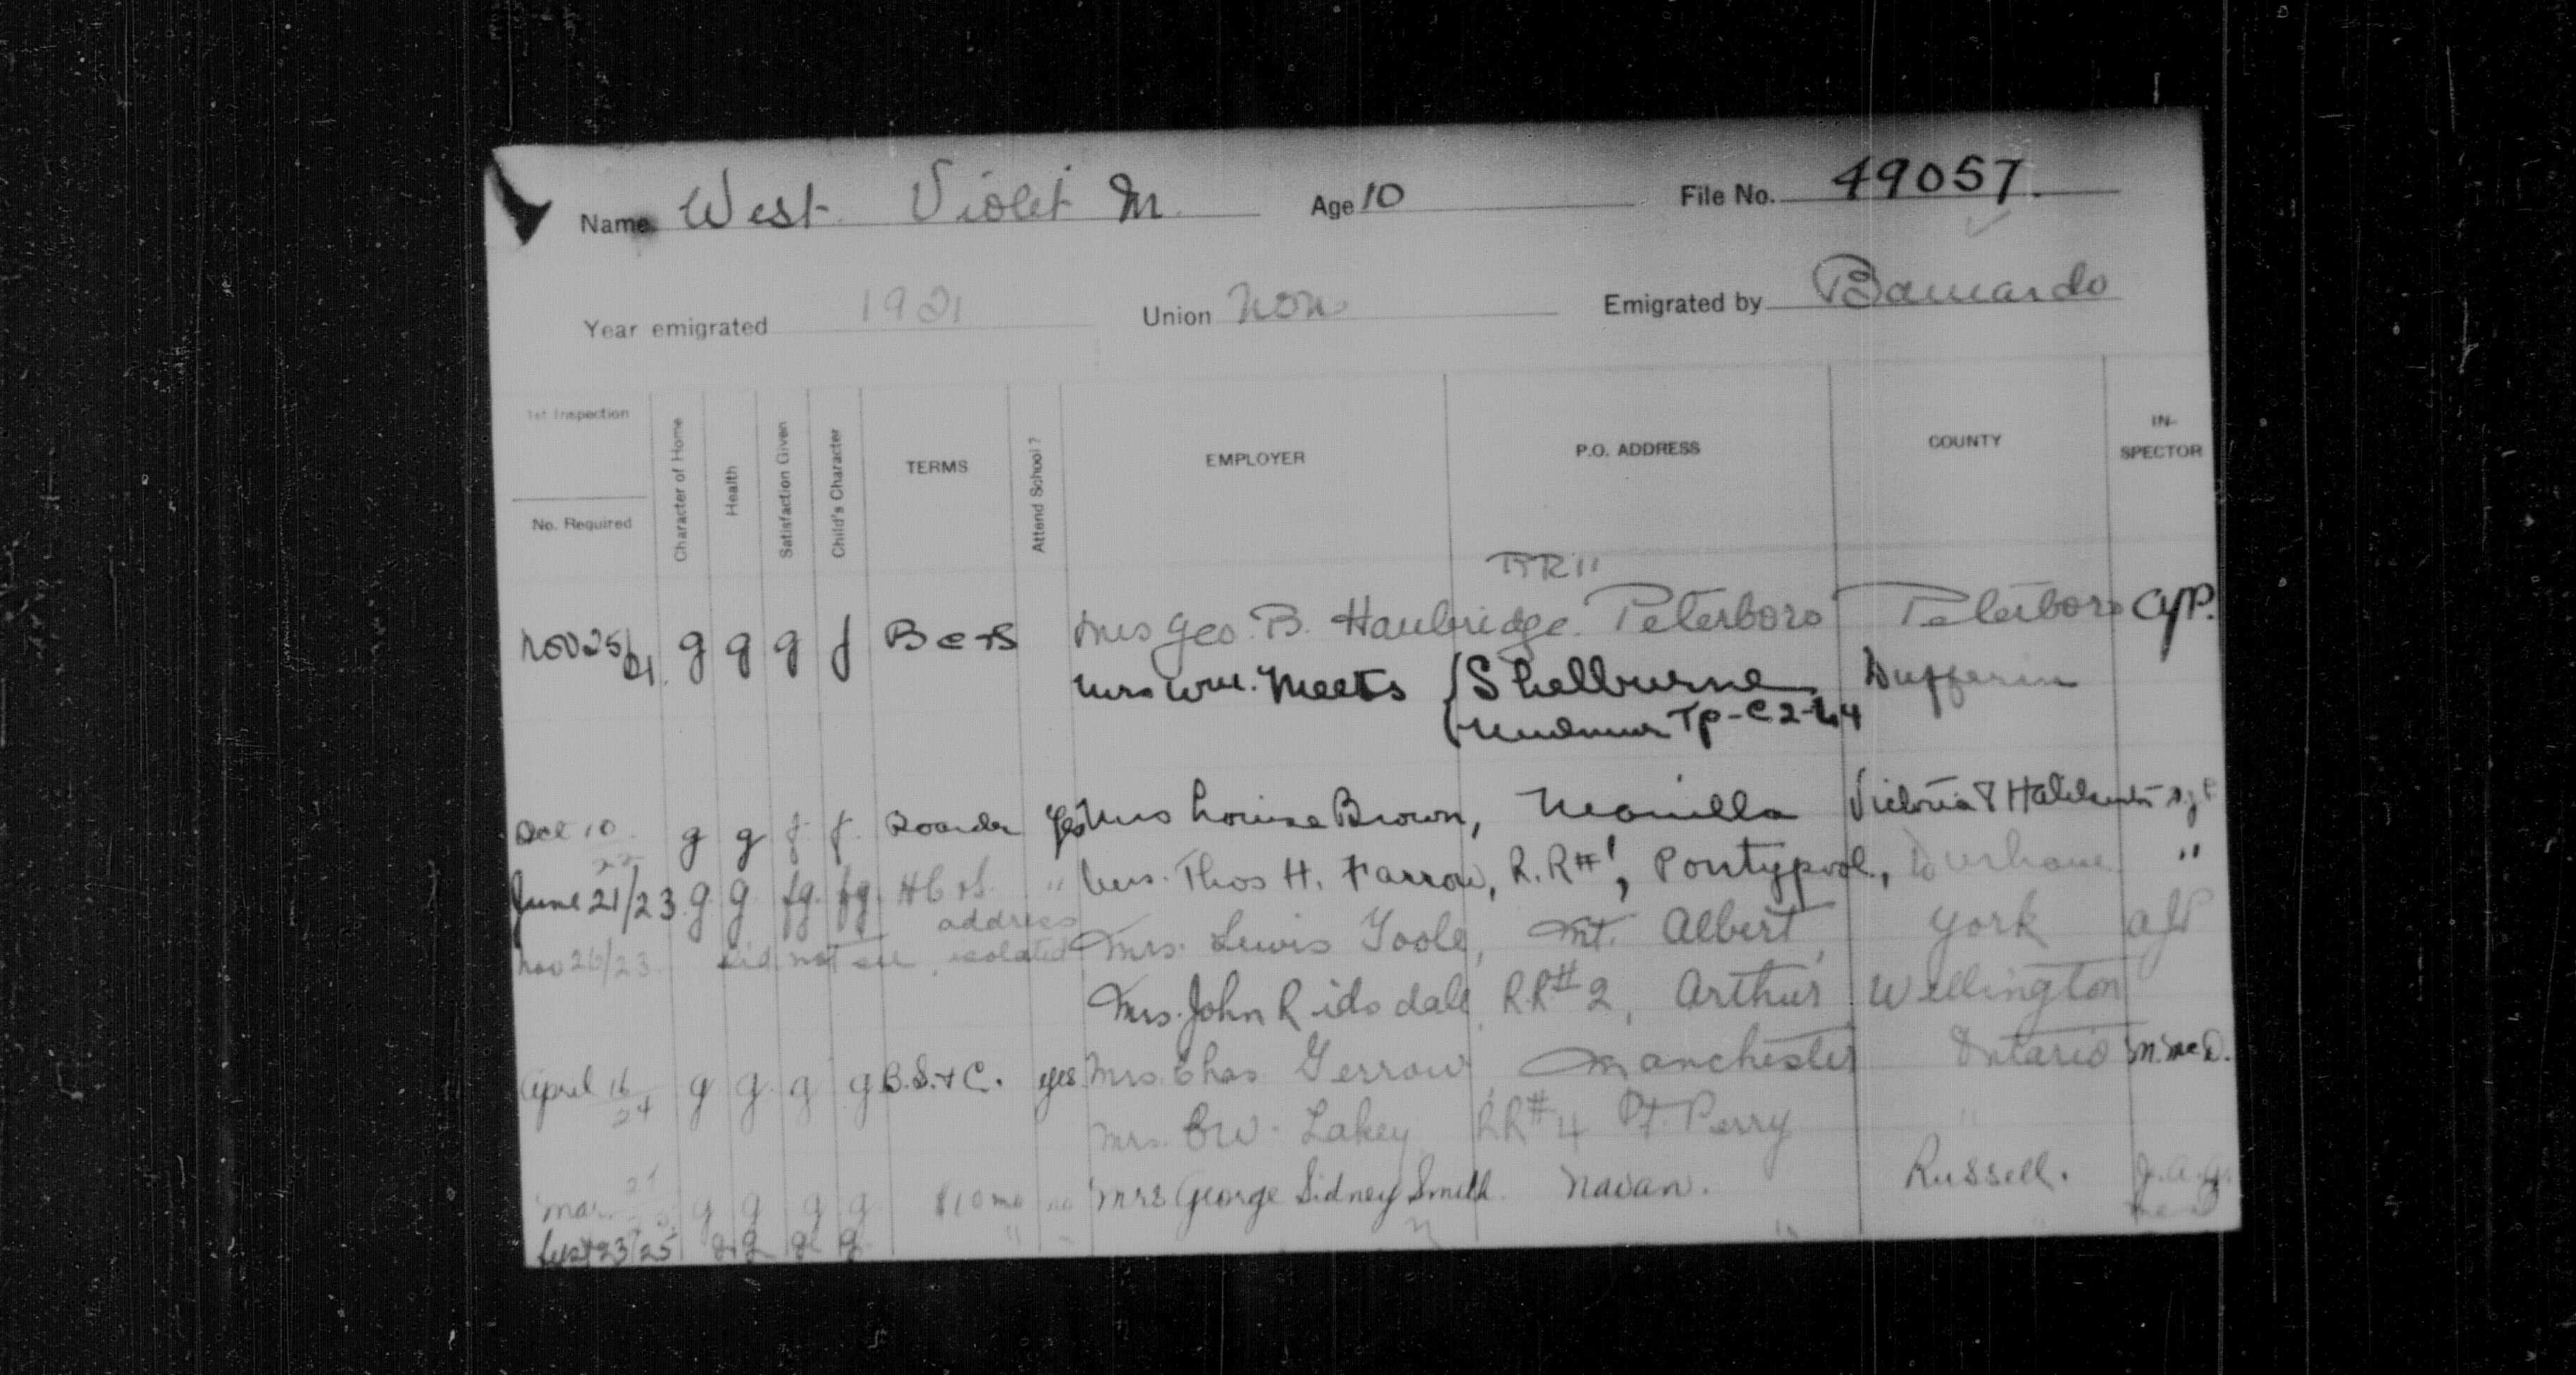 Name West Violet M. Age 10 File No. 49057.
Year emigrated 1921 Union Non Emigrated by Barnardo
1st Inspection
No. Required
Character of Home
Health
Satisfaction Given
Child's Character
TERMS
Attend School?
EMPLOYER
P.O. ADDRESS
COUNTY
IN-
SPECTOR
RR 11
Nov 25/21. g g g f B C + S Mrs Geo. B. Peterboro Peterboro
Mrs Wm. Meets Shelburne Dufferin
Tp - C 2 - L 4
Oct 10 22 g g f f Boarder yes Mrs Louise Brown, Manilla Victoria &
June 21/23 g. g fg. fg. " Mrs. Thos H. Farrow, R.R #1, Pontypool, Durham "
address
Nov 26/23 did not see, isolated Mrs. Lewis Toole, Mt. Albert, York
Mrs. John Ridsdale R.R #2, Arthur Wellington
April 16 24 g g. g g B. S. + C. yes Mrs. Chas Gerrow, Manchester Ontario M. McD.
Mrs. Lakey RR #4 Pt. Perry "
Mar g g g g $10 mo no Mrs George Sidney Smith Navan. Russell. J. A. G.
23/25 g g g " " " "